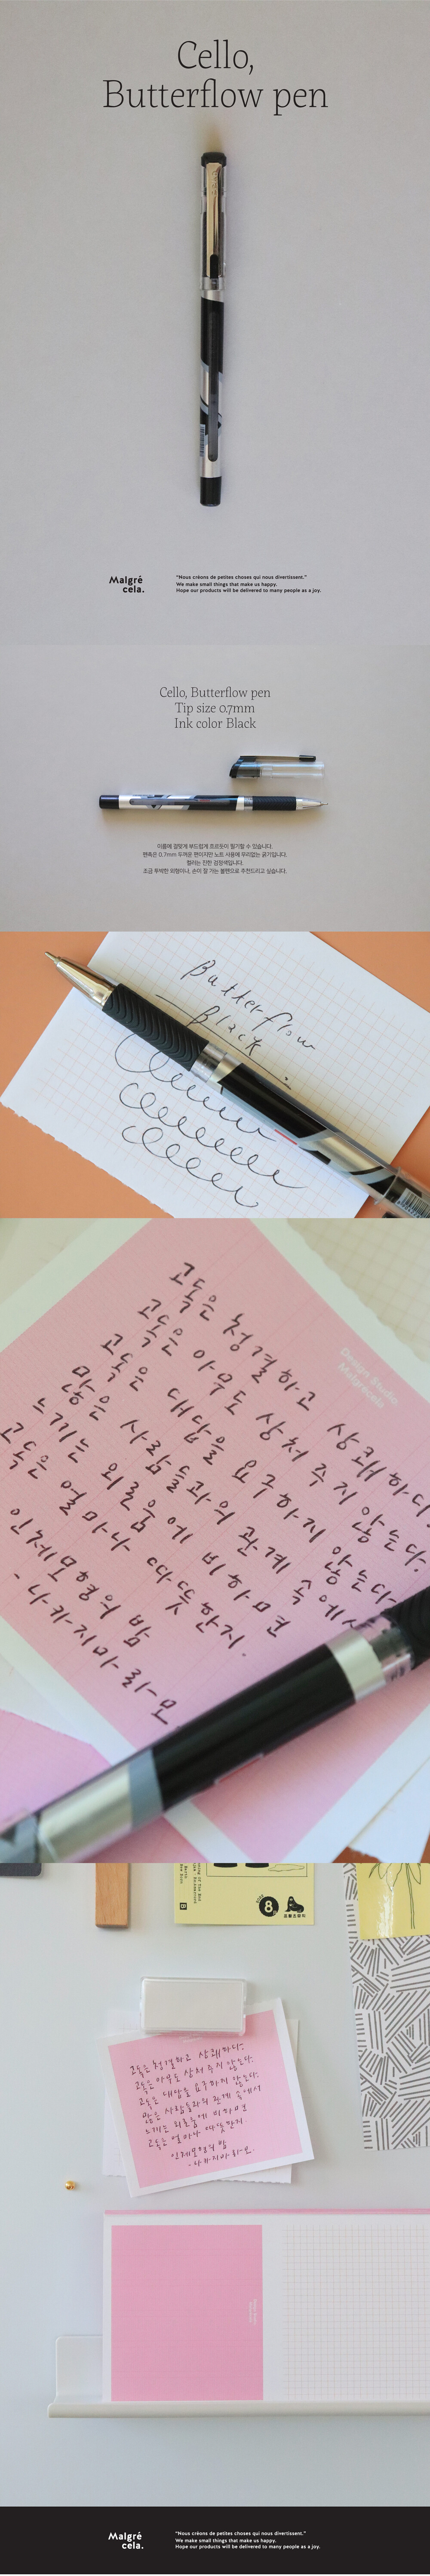 Cello,
Butterflow pen
Malgré
cela.
"Nous créons de petites choses qui nous divertissent."
We make small things that make us happy.
Hope our products will be delivered to many people as a joy.
Cello, Butterflow pen
Tip size 0.7mm
Ink color Black
이름에 걸맞게 부드럽게 흐르듯이 필기될 수 있습니다.
펜촉은 0.7mm 두꺼운 편이지만 노트 사용에 무리없는 굵기입니다.
컬러는 진한 검정색입니다.
조금 투박한 외형이나, 손이 잘 가는 볼펜으로 추천드리고 싶습니다.
Butterflow
Black.
Design Studio
Malgrécela
고독은 청결하고 상쾌하다.
고독은 아무도 상처 주지 않는다.
고독은 대답을 요구하지 않는다.
많은 사람들과의 관계 속에서
느끼는 외로움에 비하면
고독은 얼마나 따뜻한지.
인체모형의 밤
- 나카지마 라모
8
고독은 청결하고 상쾌하다.
고독은 아무도 상처 주지 않는다.
고독은 대답을 요구하지 않는다.
많은 사람들과의 관계 속에서
느끼는 외로움에 비하면
고독은 얼마나 따뜻한지.
인체모형의 밤
- 나카지마 라모
Malgré
cela.
"Nous créons de petites choses qui nous divertissent."
We make small things that make us happy.
Hope our products will be delivered to many people as a joy.